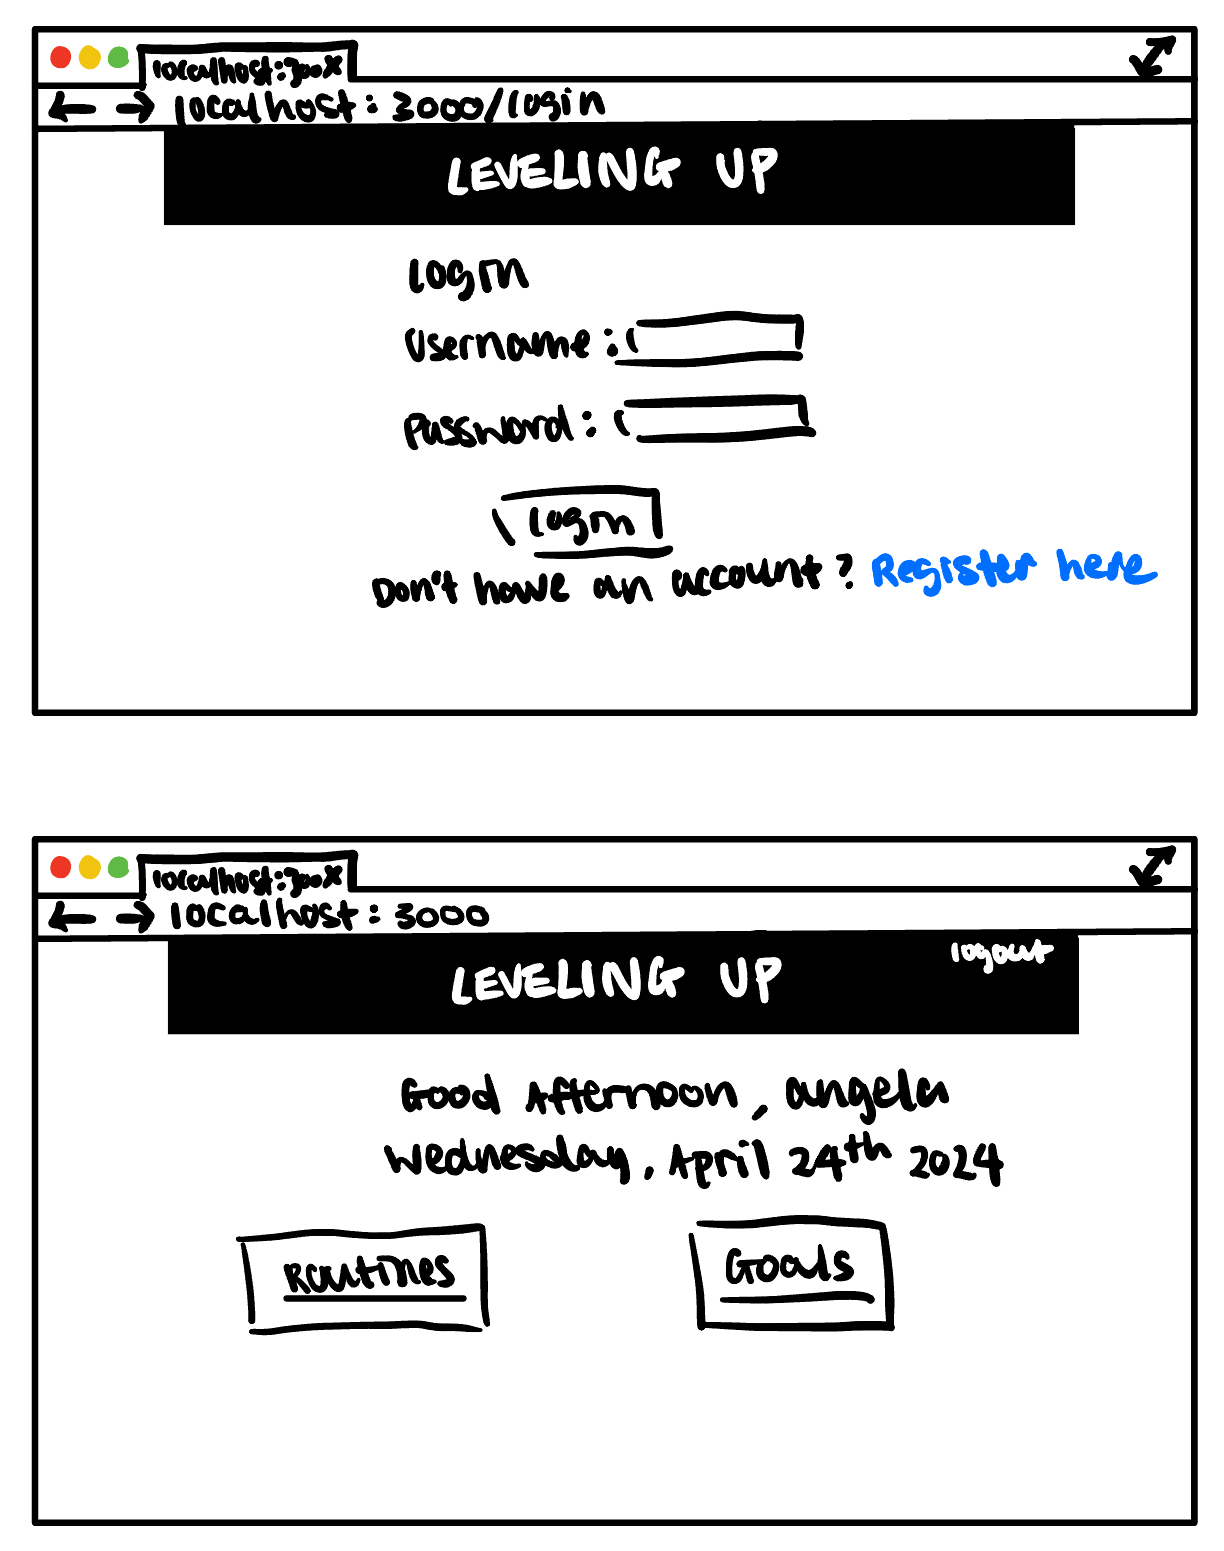 localhost:300x
localhost: 3000/login
LEVELING UP
login
Username:
Password:
login
Don't have an account? Register here
localhost:300x
localhost: 3000
logout
LEVELING UP
Good Afternoon, angela
Wednesday, April 24th 2024
Routines
Goals